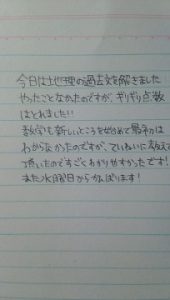 今日は地理の過去文を解きました
やったことなかったのですが、ギリギリ点数
はとれました!!
数学も新しいところを始めて最初は
わからなかったのですが、ていねいに教えて
頂いたのですごくわかりやすかったです!
また水曜日からがんばります!